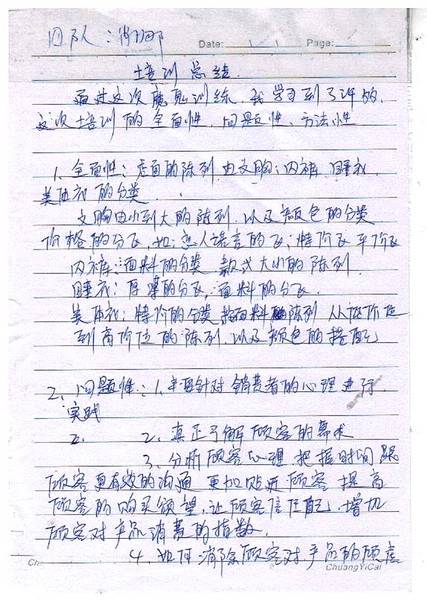 团队：
Date: Page:
培训总结
通过这次魔鬼训练，我学习到了很多
这次培训的全面性，问题性，方法性
1、全面性：店面的陈列由文胸；内裤 睡衣
美体衣的分类
文胸由小到大的陈列，以及颜色的分类
价格的分区，如：恋人语言的区；特价区 平价区
内裤：面料的分类 款式大小的陈列
睡衣：厚薄的分区，面料的分区
美体衣：特价的分类 按面料陈列 从低价位
到高价位的陈列，以及颜色的搭配
2、问题性：1、主要针对销费者的心理进行
实践
2. 2、真正了解顾客的需求
3、分析顾客心理 把握时间跟
顾客更有效的沟通 更加贴近顾客 提高
顾客的购买欲望，让顾客信任，增加
顾客对产品消费的指数
4、如何消除顾客对产品的顾虑
Ch ChuangYiCai